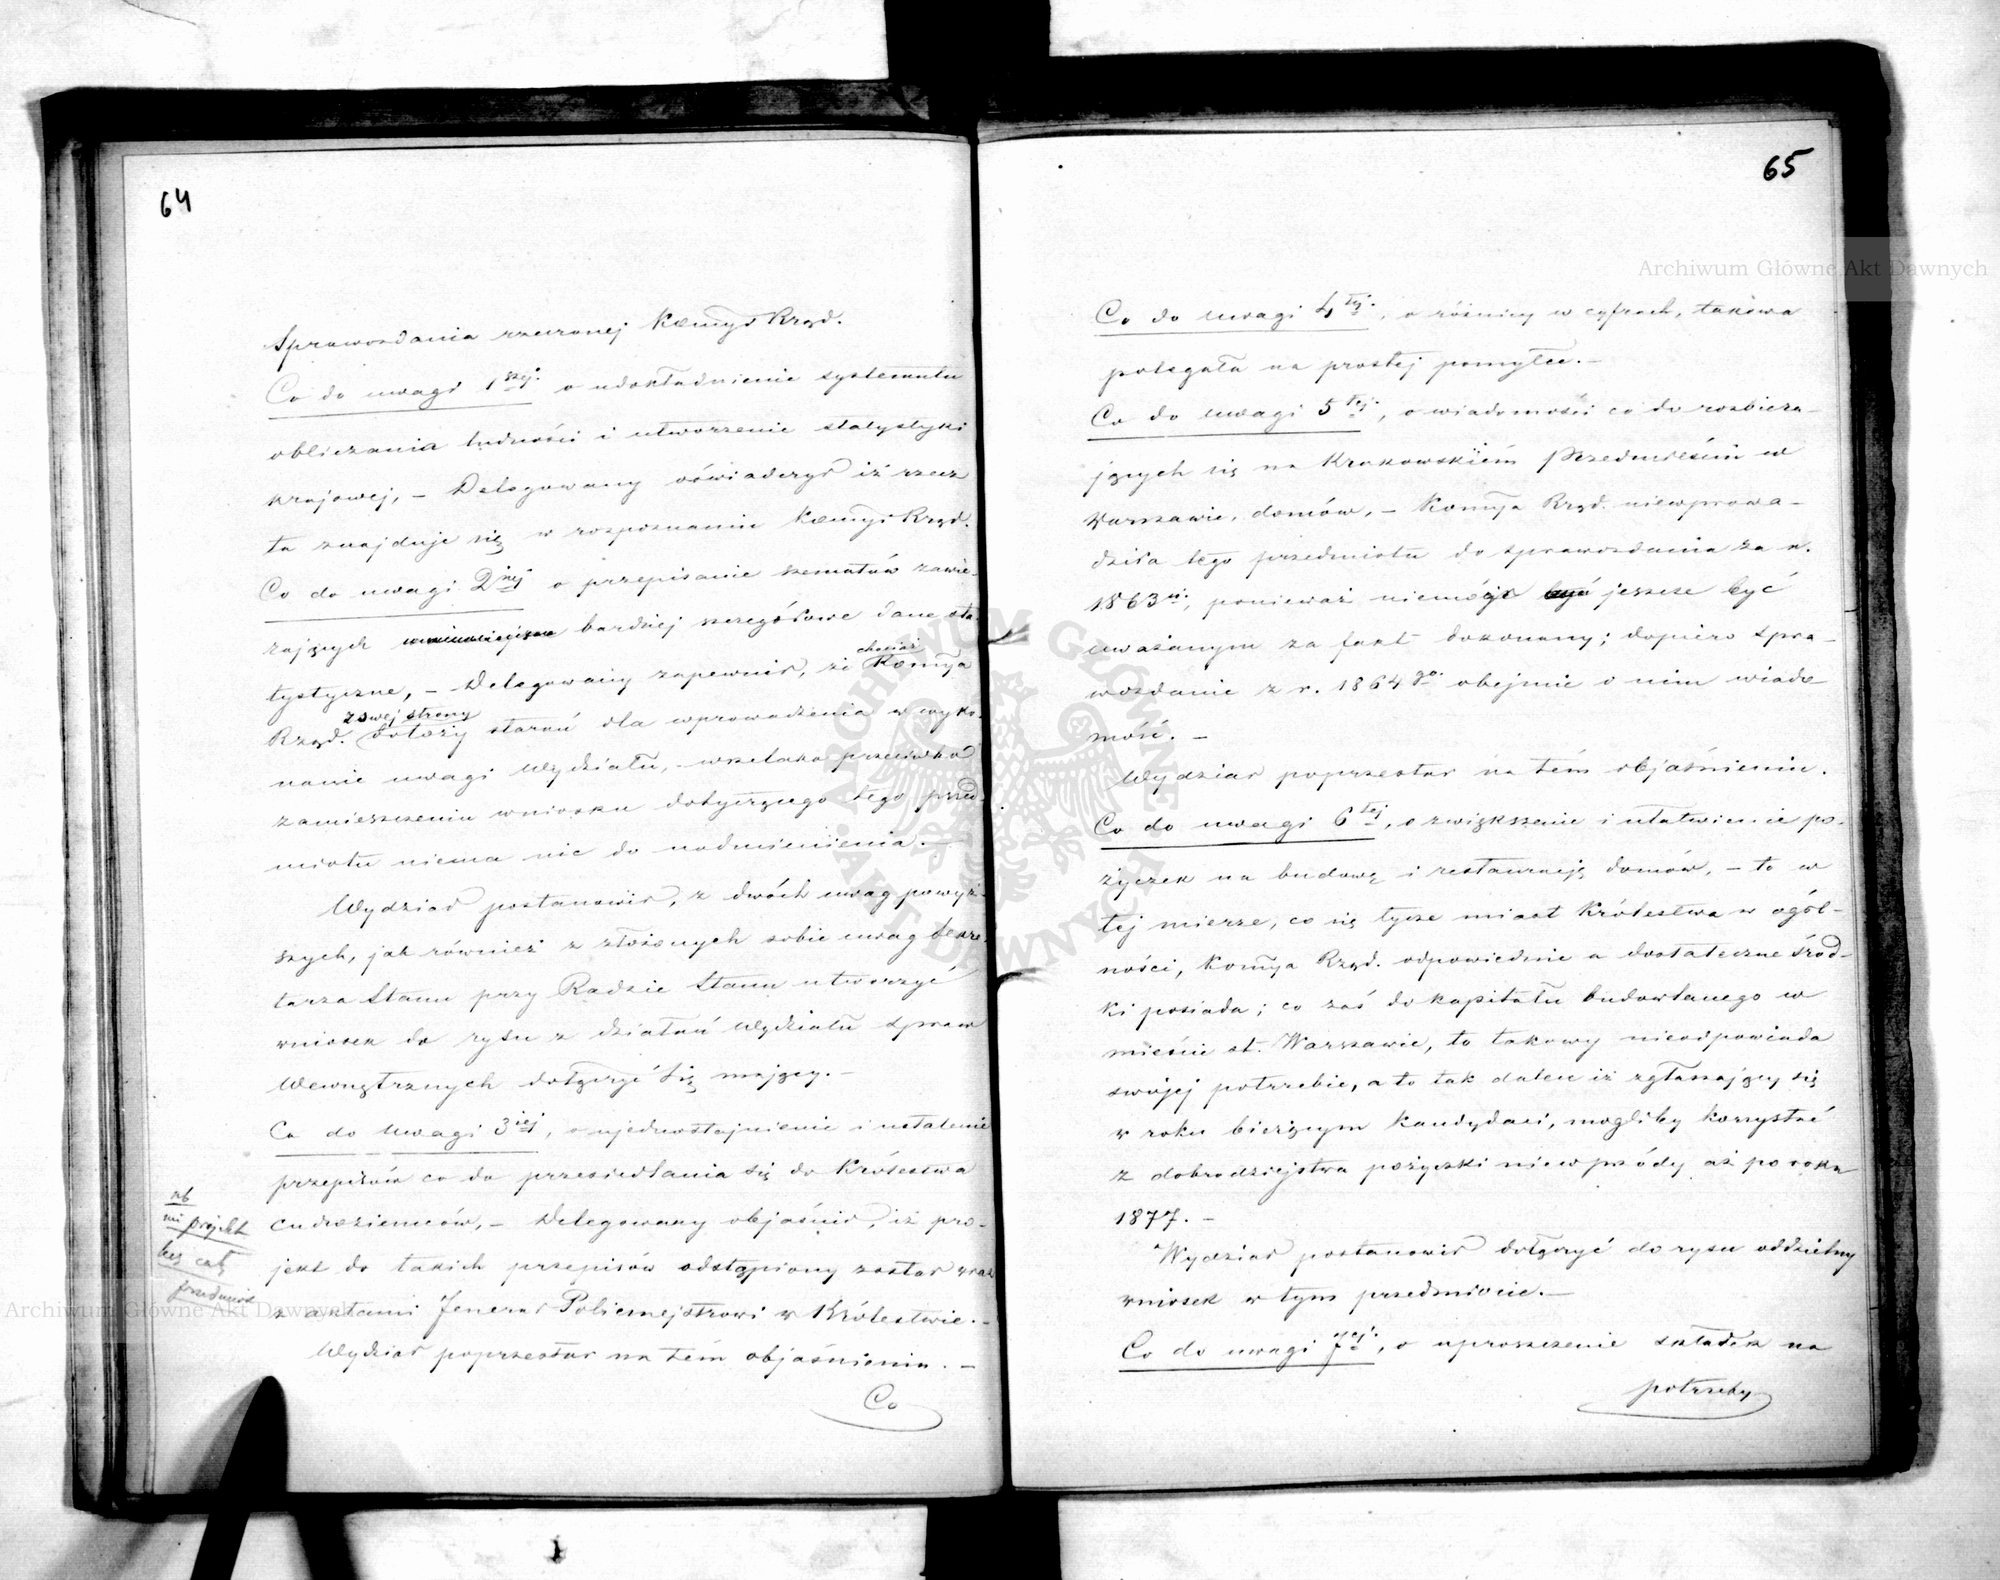 64
Sprawozdania rzeczonej Kommyi Rząd.
Co do uwagi 1szej. o udokładnienie systematu
obliczania ludności i utworzenie statystyki
krajowej, – Delegowany oświadczył iż rzecz
ta znajduje się w rozpoznaniu Kommyi Rząd.
Co do uwagi 2iej o przepisanie szematów zawie-
rających bardziej szczegółowe dane sta
tystyczne, – Delegowany zapewnił, że chociaż Kommya
Rząd. z swej strony dołoży starań dla wprowadzenia w wyko-
nanie uwagi Wydziału, – wszelako przeciwko
zamieszczeniu wniosku dotyczącego tego przed-
miotu niema nic do nadmienienia. –
Wydział postanowił, z dwóch uwag powyż-
szych, jak również z złożonych sobie uwag Sekre-
tarza Stanu przy Radzie Stanu utworzyć
wniosek do rysu z działań Wydziału Spraw
Wewnętrznych dołączyć się mający. –
Co do Uwagi 3iej, o ujednostajnienie i ustalenie
przepisów co do przesiedlania się do Królestwa
cudzoziemców, – Delegowany objaśnił, iż pro-
jekt do takich przepisów odstąpiony został wraz
z aktami Jenerał Policmejstrowi w Królestwie. –
Wydział poprzestał na tém objaśnieniu. –
Co
nb
projekt
65
Co do Uwagi 4tej., o różnicy w cyfrach, takowa
polegała na prostej pomyłce. –
Co do Uwagi 5tej., o wiadomości co do rozbiera-
jących się na Krakowskiém Przedmieściu w
Warszawie, domów, – Kommya Rząd. niewprowa-
dziła tego przedmiotu do sprawozdania za r.
1863 r., ponieważ niemógł jeszcze być
uważanym za fakt dokonany; dopiero Spra-
wozdanie z r. 1864go obejmie o nim wiado-
mość. –
Wydział poprzestał na tém objaśnieniu.
Co do uwagi 6tej, o zwiększenie i ułatwienie po-
życzek na budowę i restauracją domów, – to w
tej mierze, co się tycze miast Królestwa w ogól-
ności, Kommya Rząd. odpowiednie a dostateczne środ-
ki posiada; co zaś do kapitału budowlanego w
mieście st. Warszawie, to takowy nieodpowiada
swojej potrzebie, a to tak dalece iż zgłaszający się
w roku bieżącym kandydaci, mogliby korzystać
z dobrodziejstwa pożyczki niewprzódy aż po roku
1877. –
Wydział postanowił dołączyć do rysu oddzielny
wniosek w tym przedmiocie. –
Co do uwagi 7ej., o uproszczenie składek na
potrzeby
Archiwum Główne Akt Dawnych
Archiwum Główne Akt Dawnych
ARCHIWUM GŁÓWNE AKT DAWNYCH